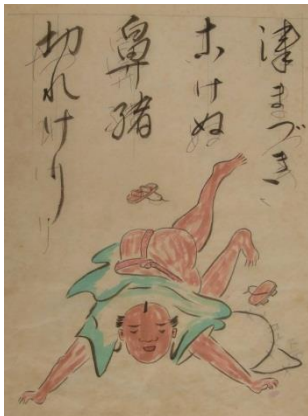 津まづき
こけぬ
鼻緒
切れけり